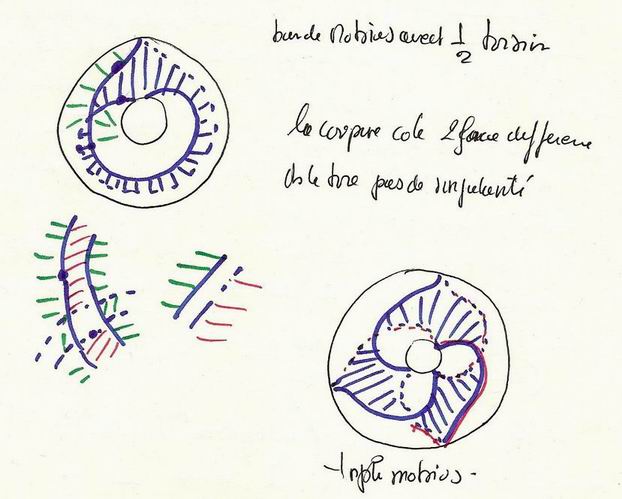 bande Mobius avec 1 1/2 torsion
la coupure cole 2 face differene
ds le tore pas de singularité
triple mobius -